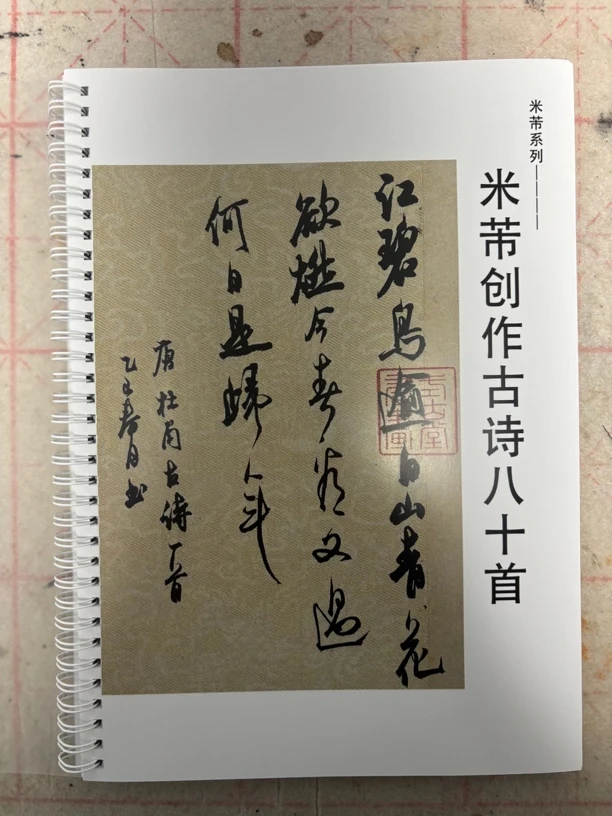 米芾系列————
米芾创作古诗八十首
江碧鳥逾白山青花
欲燃今春看又過
何日是歸年
唐杜甫古詩一首
乙巳春月書